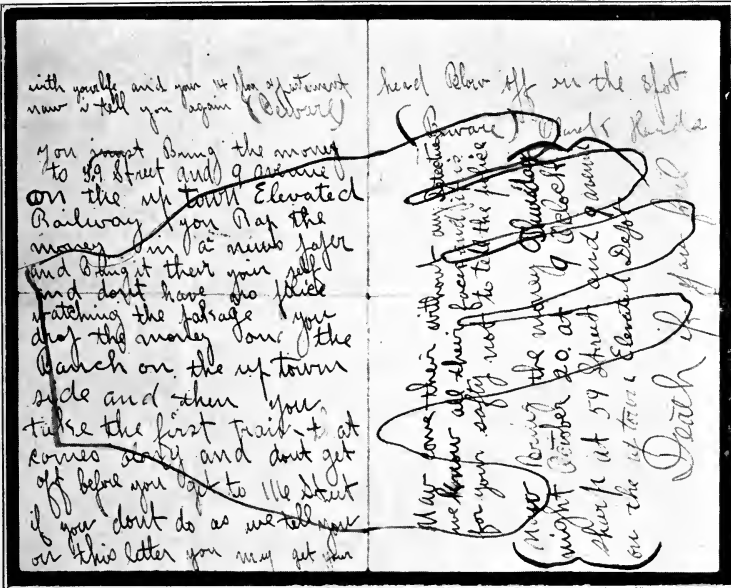 with your life and your
now i tell you again (Beware)
you must Bring the money
to 59 Street and 9 avenue
on the up town Elevated
Railway you Rap the
money in a news paper
and Bring it their your self
and dont have no police
watching the pakage you
drop the money on the
Banch on the up town
side and then you
take the first train that
comes along and dont get
off before you get to 116 Street
if you dont do as we tell you
on this letter you may get your
head Blow off in the spot
(Beware)
Now come their without any detective
we know all their faces and it is
for your safty not to tell the police
Now Bring the money Thursday
night October 20. at 9 oclock
sharp at 59 Street and 9 avenue
on the up town Elevated Depo
Death if you fail